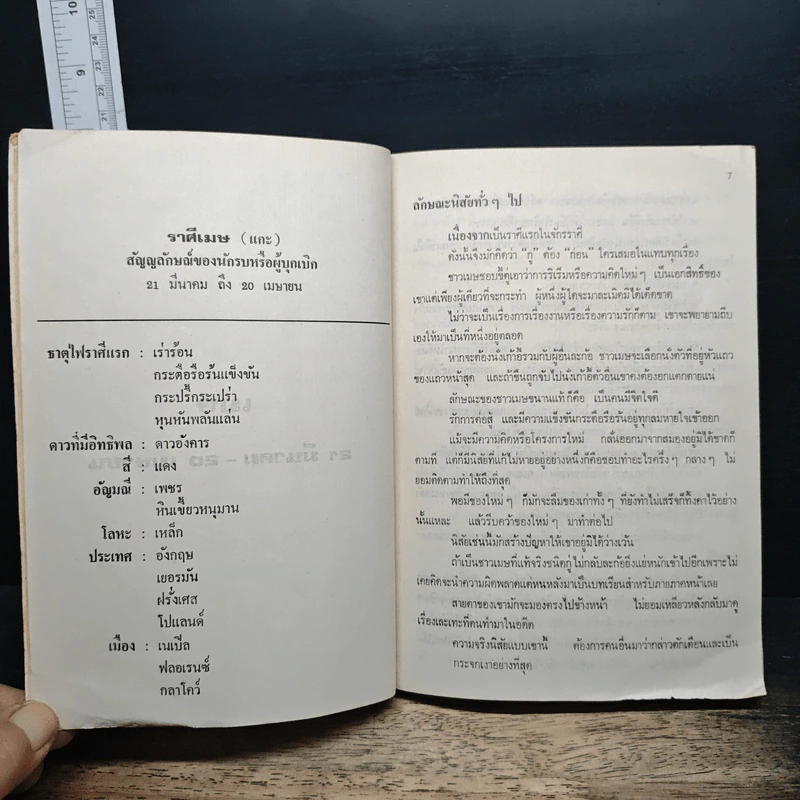 10
9
25
24
23
22
21
ราศีเมษ (แกะ)
สัญญลักษณ์ของนักรบหรือผู้บุกเบิก
21 มีนาคม ถึง 20 เมษายน
ธาตุไฟราศีแรก : เร่าร้อน
กระตือรือร้นแข็งขัน
กระปรี้กระเปร่า
หุนหันพลันแล่น
ดาวที่มีอิทธิพล : ดาวอังคาร
สี : แดง
อัญมณี : เพชร
หินเขี้ยวหนุมาน
โลหะ : เหล็ก
ประเทศ : อังกฤษ
เยอรมัน
ฝรั่งเศส
โปแลนด์
เมือง : เนเปิล
ฟลอเรนซ์
กลาโคว์
7
ลักษณะนิสัยทั่ว ๆ ไป
เนื่องจากเป็นราศีแรกในจักรราศี
ดังนั้นจึงมักคิดว่า "กู" ต้อง "ก่อน" ใครเสมอในแทบทุกเรื่อง
ชาวเมษชอบขี้ตู่เอาว่าการริเริ่มหรือความคิดใหม่ ๆ เป็นเอกสิทธิ์ของ
เขาแต่เพียงผู้เดียวที่จะกระทำ ผู้หนึ่งผู้ใดจะมาละเมิดมิได้เด็ดขาด
ไม่ว่าจะเป็นเรื่องการเรื่องงานหรือเรื่องความรักก็ตาม เขาจะพยายามถีบ
เองให้มาเป็นที่หนึ่งอยู่ตลอด
หากจะต้องนั่งเก้าอี้รวมกับผู้อื่นละก้อ ชาวเมษจะเลือกนั่งตัวที่อยู่หัวแถว
ของแถวหน้าสุด และถ้าขืนถูกจับไปนั่งเก้าอี้ตัวอื่นเขาคงต้องอกแตกตายแน่
ลักษณะของชาวเมษขนานแท้ก็คือ เป็นคนมีจิตใจดี
รักการต่อสู้ และมีความแข็งขันกระตือรือร้นอยู่ทุกลมหายใจเข้าออก
แม้จะมีความคิดหรือโครงการใหม่ กลั่นออกมาจากสมองอยู่มิได้ขาดก็
ตามที แต่ก็มีนิสัยที่แก้ไม่หายอยู่อย่างหนึ่งก็คือชอบทำอะไรครึ่ง ๆ กลาง ๆ ไม่
ยอมติดตามทำให้ถึงที่สุด
พอมีของใหม่ ๆ ก็มักจะลืมของเก่าทั้ง ๆ ที่ยังทำไม่เสร็จก็ทิ้งคาไว้อย่าง
นั้นแหละ แล้วรีบคว้าของใหม่ ๆ มาทำต่อไป
นิสัยเช่นนี้มักสร้างปัญหาให้เขาอยู่มิได้ว่างเว้น
ถ้าเป็นชาวเมษที่แท้จริงชนิดกู่ไม่กลับละก้อยิ่งแย่หนักเข้าไปอีกเพราะไม่
เคยคิดจะนำความผิดพลาดแต่หนหลังมาเป็นบทเรียนสำหรับภายภาคหน้าเลย
สายตาของเขามักจะมองตรงไปข้างหน้า ไม่ยอมเหลียวหลังกลับมาดู
เรื่องเละเทะที่ตนทำมาในอดีต
ความจริงนิสัยแบบเขานี้ ต้องการคนอื่นมาว่ากล่าวตักเตือนและเป็น
กระจกเงาอย่างที่สุด